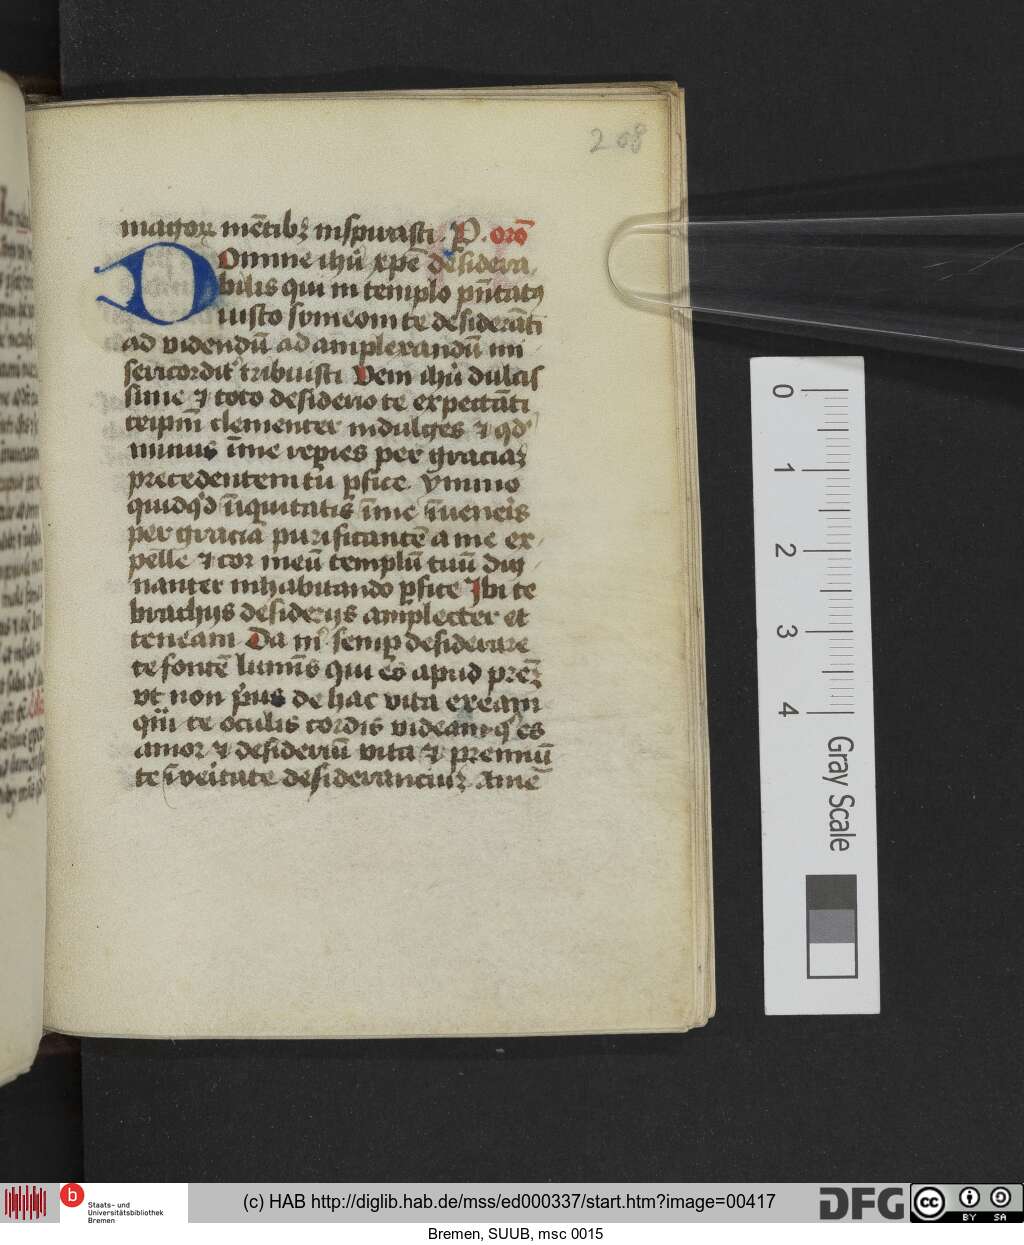 208
magoꝝ mētibꝫ inspirasti. P. orō
Domine ihū xp̄e desidera
bilis qui in templo pn̄tatꝰ
iusto symeoni te desiderāti
ad videndū ad amplexandū mi
sericordit̄ tribuisti Veni ihū dulcis
sime ⁊ toto desiderio te expectāti
clementer indulges ⁊ qd
minus ī me repies per graciaꝫ
precedentem tu ꝑfice ymmo
quidqd īiquitatis ī me īueneris
per graciā purificantē a me ex
pelle ⁊ cor meū templū tuū dig
nanter inhabitando ꝑfice Ibi te
brachijs desiderijs amplecter et
teneam Da m̄ semꝑ desiderare
te fontē lumīs qui es apud prēꝫ
vt non pͥus de hac vita exeam
te oculis cordis videam qͥ es
amor ⁊ desideriū vita ⁊ premiū
te ī veritate desideranciuꝫ Amē
0
1
2
3
4
Gray Scale
b
Staats- und
Universitätsbibliothek
Bremen
(c) HAB http://diglib.hab.de/mss/ed000337/start.htm?image=00417
DFG
cc
BY SA
Bremen, SUUB, msc 0015